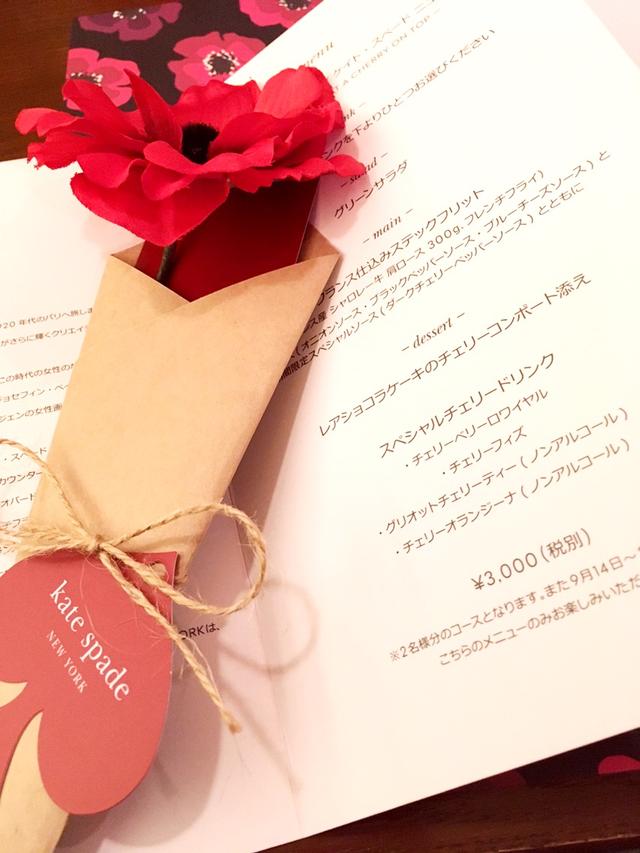 menu
イト・スペード ニ
A CHERRY ON TOP
ンクを下よりひとつお選びください
- salad -
グリーンサラダ
- main -
フランス仕込みステックフリット
ス産 シャロレー牛 肩ロース 300g、フレンチフライ)
(オニオンソース・ブラックペッパーソース・ブルーチーズソース) と
間限定スペシャルソース (ダークチェリーペッパーソース) とともに
- dessert -
レアショコラケーキのチェリーコンポート添え
スペシャルチェリードリンク
・チェリーベリーロワイヤル
・チェリーフィズ
・グリオットチェリーティー (ノンアルコール)
・チェリーオランジーナ (ノンアルコール)
¥3,000 (税別)
※2名様分のコースとなります。また9月14日〜
こちらのメニューのみお楽しみいただ
20 年代のパリへ旅し
がさらに輝くクリエイ
この時代の女性の
ョセフィン・ベ
ジェンの女性画
・スペード
カウンター
オバート
ORKは、
kate spade
NEW YORK